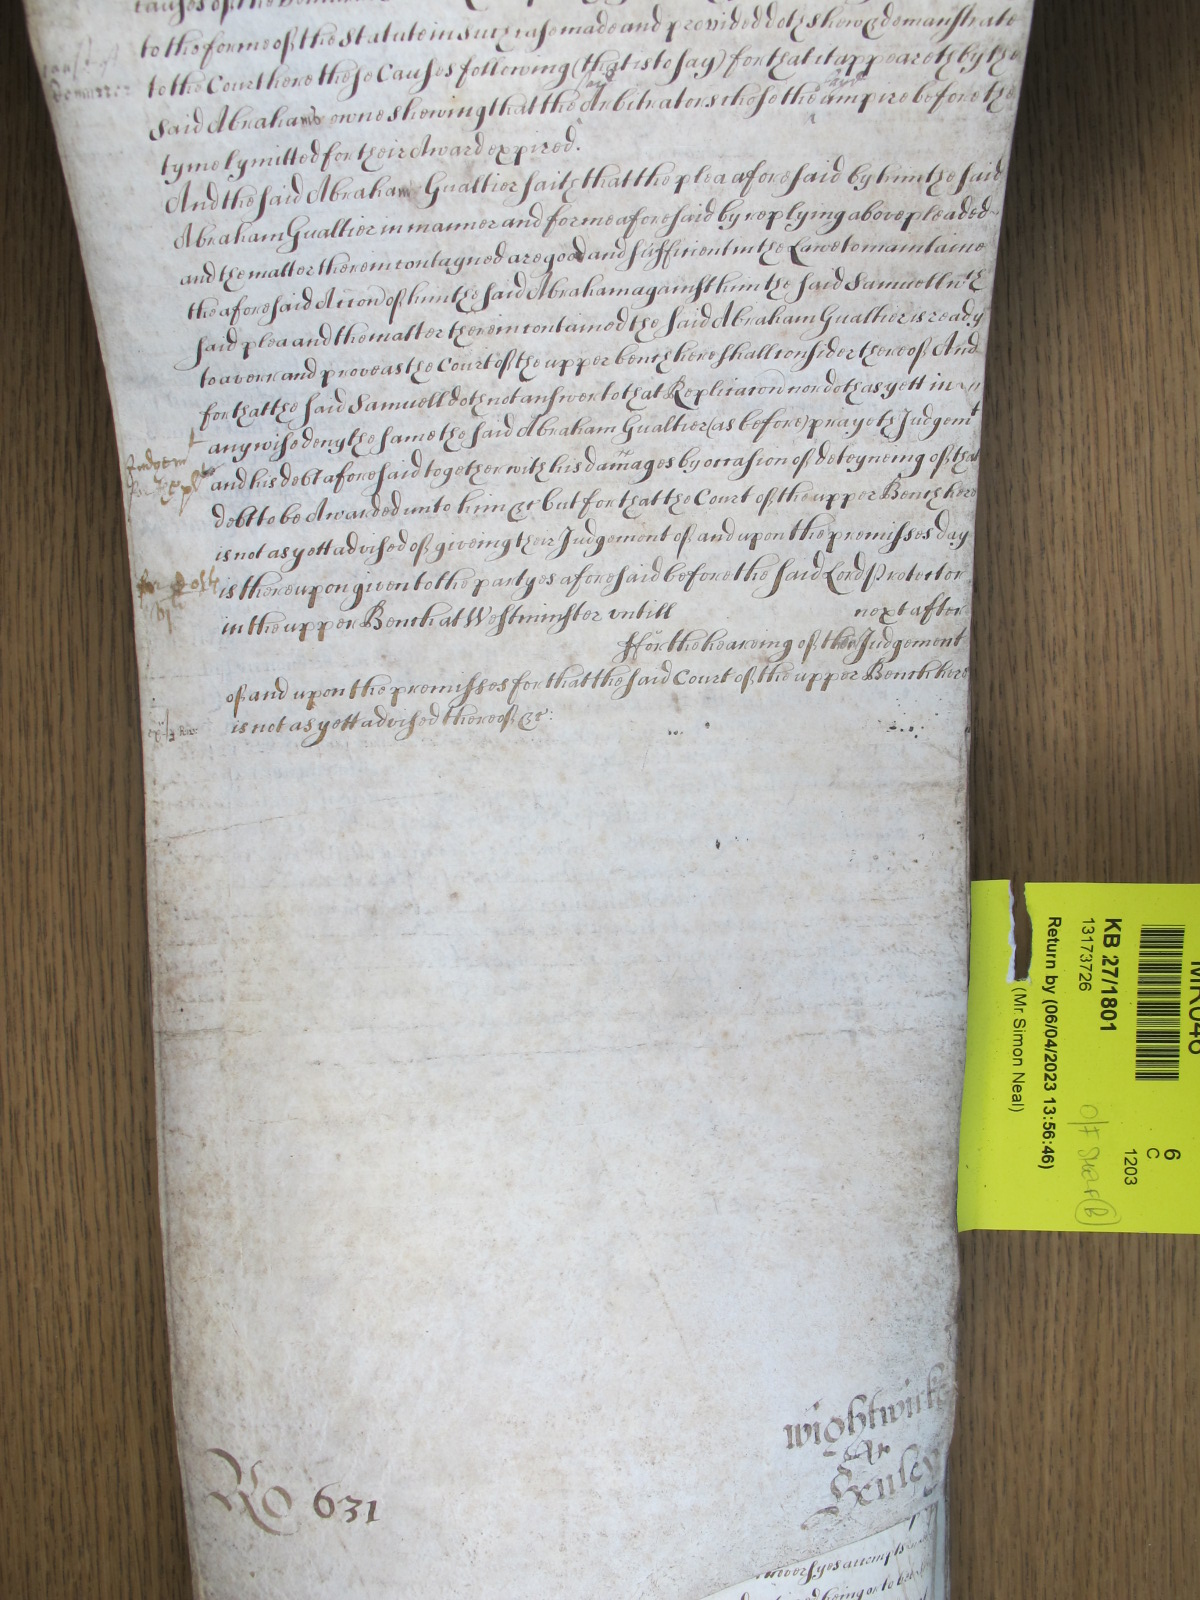 causes of the
to the forme of the Statute in such case made and provided doth shew & demonstrate
to the Court here these Causes following (that is to say) for that it appeareth by the
said Abrahams owne shewing that the Arbitrators chose the umpire before the
tyme lymitted for their Award expired.
And the said Abraham Gualtier saith that the plea aforesaid by him the said
Abraham Gualtier in manner and forme aforesaid by replying above pleaded
and the matter therein contayned are good and sufficient in the Lawe to maintaine
the aforesaid Accon of him the said Abraham against him the said Samuell wch
said plea and the matter therein contained the said Abraham Gualtier is ready
to averr and prove as the Court of the upper bench here shall consider thereof And
for that the said Samuell doth not answer to that Replicacon nor doth as yett in
any wise deny the same the said Abraham Gualtier (as before) prayeth Judgemt
and his debt aforesaid together with his damages by occasion of deteyneing of that
debt to be Awarded unto him &c but for that the Court of the upper Bench here
is not as yett advised of giveing their Judgement of and upon the premisses day
is thereupon given to the partyes aforesaid before the said Lord Protector
in the upper Bench at Westminster untill next after
ffor the heareing of their Judgement
of and upon the premisses for that the said Court of the upper Bench here
is not as yett advised thereof &c:
Ro 631
wightwicke
Ar
Henley
MR046
KB 27/1801
13173726
Return by (06/04/2023 13:56:46)
(Mr Simon Neal)
6
C
1203
O/F